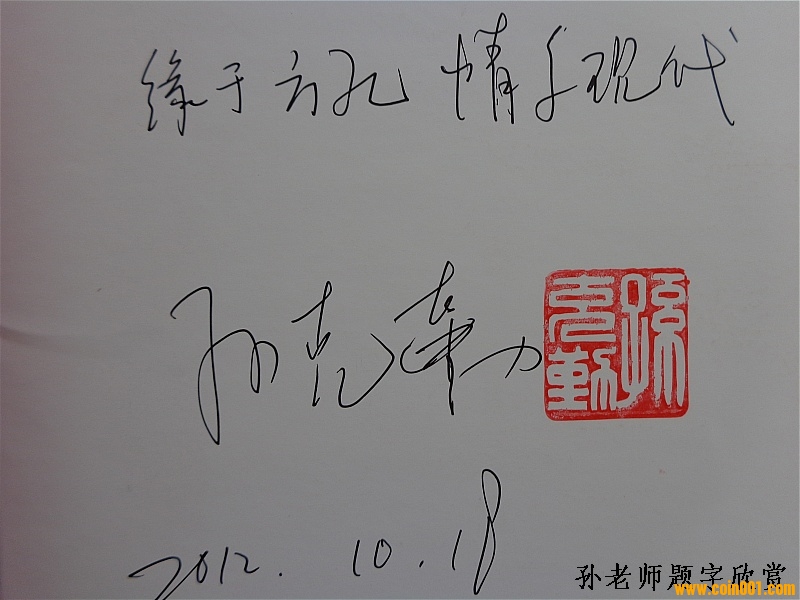 缘于方孔 情于现代
孙克勤
孙克勤
2012.10.18
孙老师题字欣赏
www.coin001.com